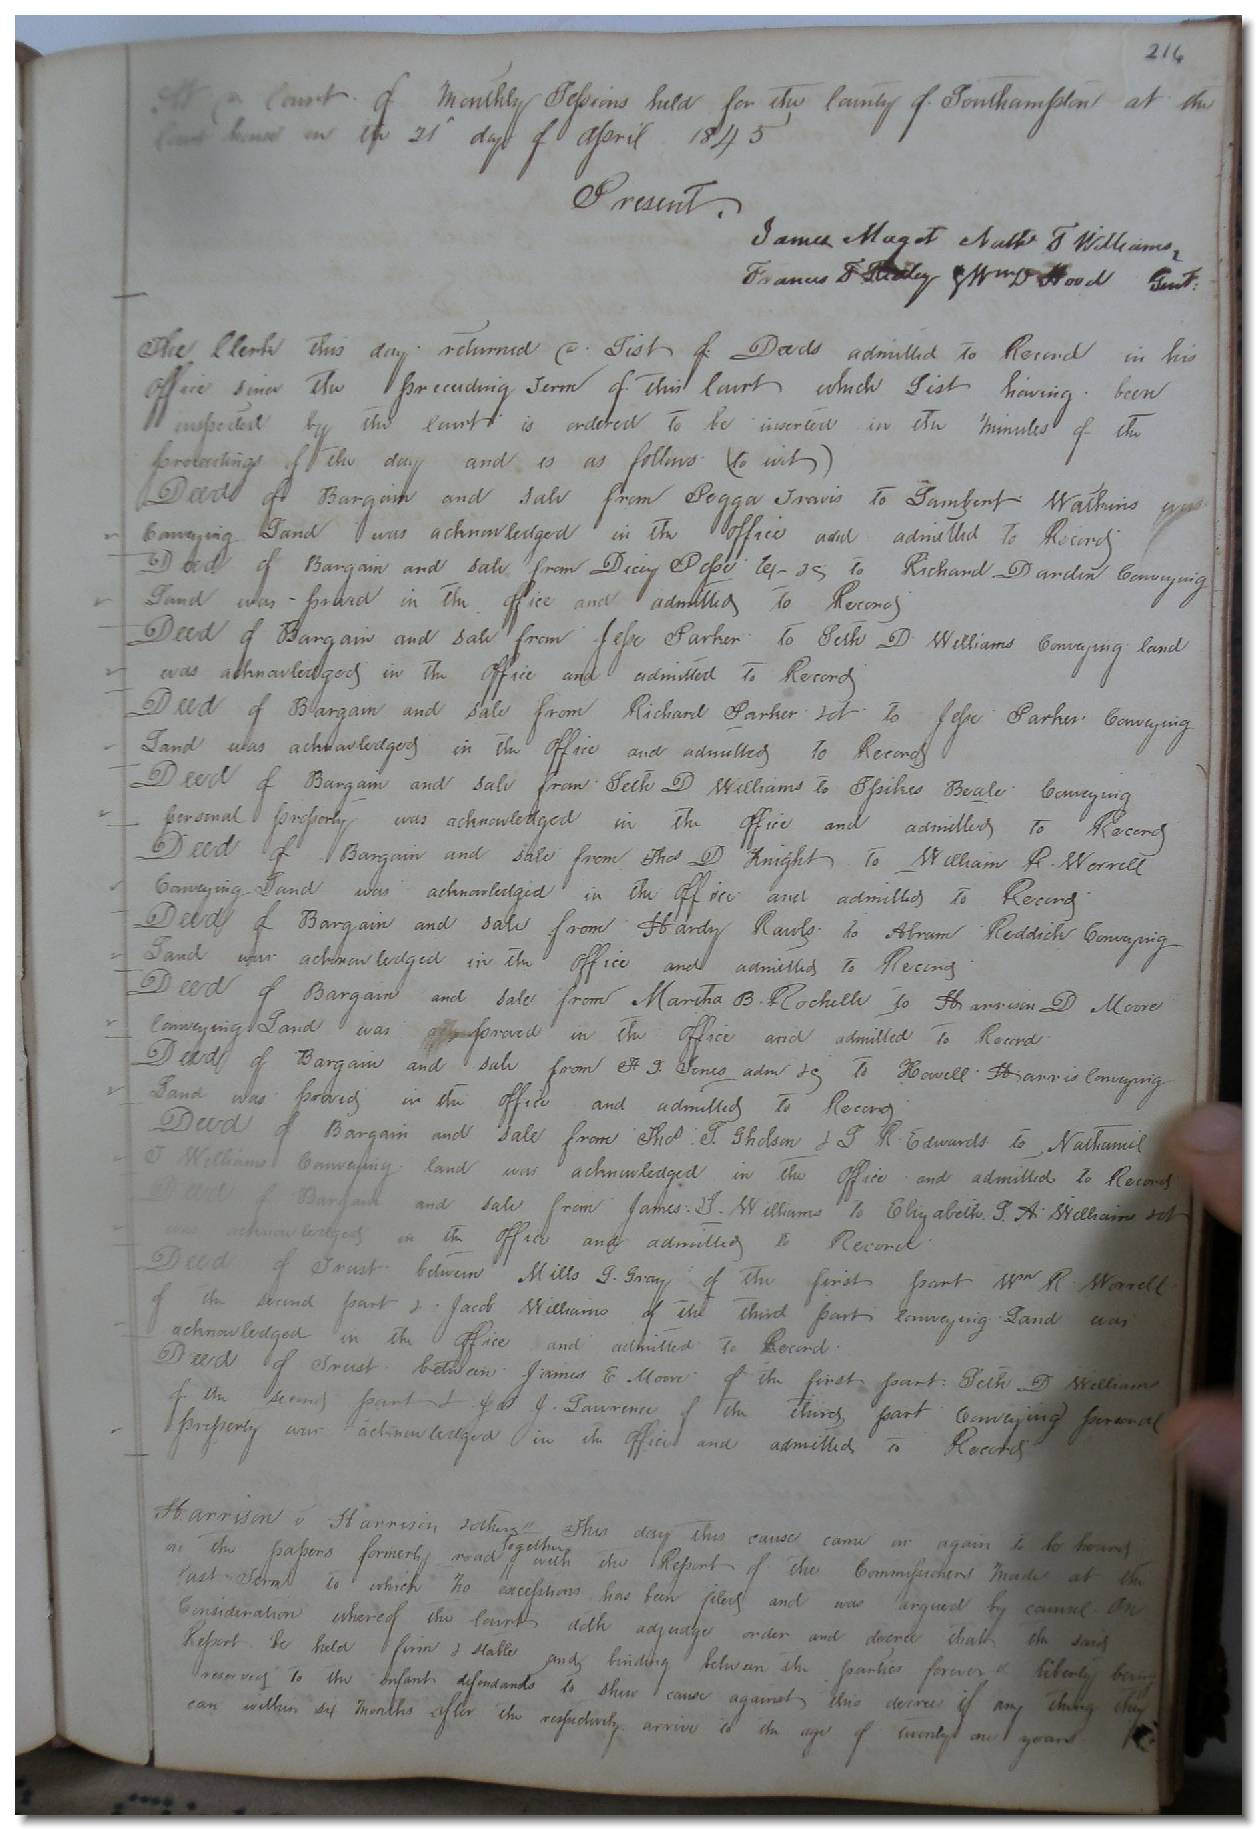 216
At a Court of Monthly Sessions held for the County of Southampton at the
Court house on the 21st day of April 1845
Present.
James Maget Nathl T Williams,
Francis T Ridley & Wm D Hood Gent:
The Clerk this day returned a List of Deeds admitted to Record in his
office since the preceeding Term of this Court which List having been
inspected by the Court is ordered to be inserted in the Minutes of the
proceedings of the day and is as follows (to wit)
Deed of Bargain and sale from Pegga Travis to Lambert Watkins
Conveying Land was acknowledged in the office and admitted to Record
Deed of Bargain and sale from Dicey Pope to Richard Darden Conveying
Land was proved in the office and admitted to Record
Deed of Bargain and sale from Jesse Parker to Seth D Williams Conveying land
was acknowledged in the office and admitted to Record
Deed of Bargain and sale from Richard Parker &c to Jesse Parker Conveying
Land was acknowledged in the office and admitted to Record
Deed of Bargain and sale from Seth D Williams to Spikes Beale Conveying
personal property was acknowledged in the office and admitted to Record
Deed of Bargain and sale from Thos D Knight to William R. Worrell
Conveying Land was acknowledged in the office and admitted to Record
Deed of Bargain and sale from Hardy Rawls to Abram Reddick Conveying
Land was acknowledged in the office and admitted to Record
Deed of Bargain and sale from Martha B. Rochelle to Harrison D Moore
Conveying Land was proved in the office and admitted to Record
Deed of Bargain and sale from Jones adm &c to Howell Harris Conveying
Land was proved in the office and admitted to Record
Deed of Bargain and sale from Thos. T. Gholson & R. Edwards to Nathaniel
T Williams Conveying land was acknowledged in the office and admitted to Record
Deed of Bargain and sale from James Williams to Elizabeth A Williams
was acknowledged in the office and admitted to Record
Deed of Trust between Mills G. Gray of the first part Wm R. Worrell
of the second part & Jacob Williams of the third part Conveying Land was
acknowledged in the office and admitted to Record.
Deed of Trust between James E Moore of the first part Seth D Williams
of the second part & J. Lawrence of the third part Conveying personal
property was acknowledged in the office and admitted to Record
Harrison v Harrison & others This day this cause came on again to be heard
on the papers formerly read together with the Report of the Commissioners Made at the
last Term to which No exceptions has been filed and was argued by counsel On
Consideration whereof the Court doth adjudge order and decree that the said
Report be held firm & stable and binding between the parties forever liberty being
reserved to the infant defendants to shew cause against this decree if any thing they
can within six Months after the respectively arrive to the age of twenty one years